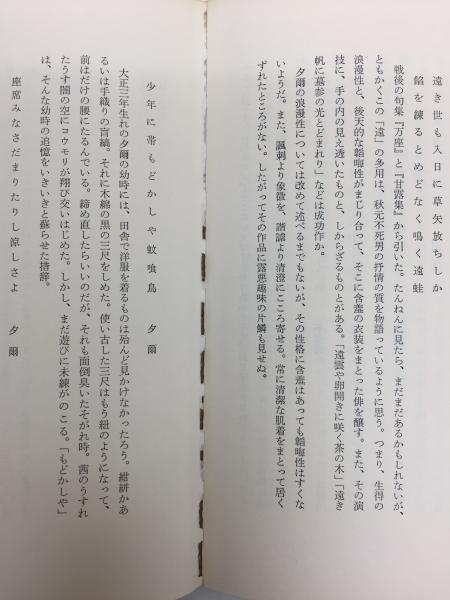 遠き世も入日に草矢放ちしか
餡を練るとめどなく鳴く遠蛙
戦後の句集『万座』と『甘露集』から引いた。たんねんに見たら、まだまだあるかもしれないが、
ともかくこの「遠」の多用は、秋元不死男の抒情の質を物語っているように思う。つまり、生得の
浪漫性と、後天的な韜晦性がまじり合って、そこに含羞の衣装をまとった俳を醸す。また、その演
技に、手の内の見え透いたものと、しからざるものとがある。「遠雲や卵開きに咲く茶の木」「遠き
帆に墓参の光とどまれり」などは成功作か。
夕爾の浪漫性については改めて述べるまでもないが、その性格に含羞はあっても韜晦性はすくな
いようだ。また、諷刺より象徴を、諧謔より清澄にこころ寄せる。常に清潔な肌着をまとって居く
ずれたところがない。したがってその作品に露悪趣味の片鱗も見せぬ。
少年に帯もどかしや蚊喰鳥 夕爾
大正三年生れの夕爾の幼時には、田舎で洋服を着るものは殆んど見かけなかったろう。紺絣かあ
るいは手織りの盲縞。それに木綿の黒の三尺をしめた。使い古した三尺はもう紐のようになって、
前はだけの腰にたるんでいる。締め直したらいいのだが、それも面倒臭いたそがれ時。茜のうすれ
たうす闇の空にコウモリが翔び交いはじめた。しかし、まだ遊びに未練がのこる。「もどかしや」
は、そんな幼時の追憶をいきいきと蘇らせた措辞。
座席みなさだまりたりし涼しさよ 夕爾